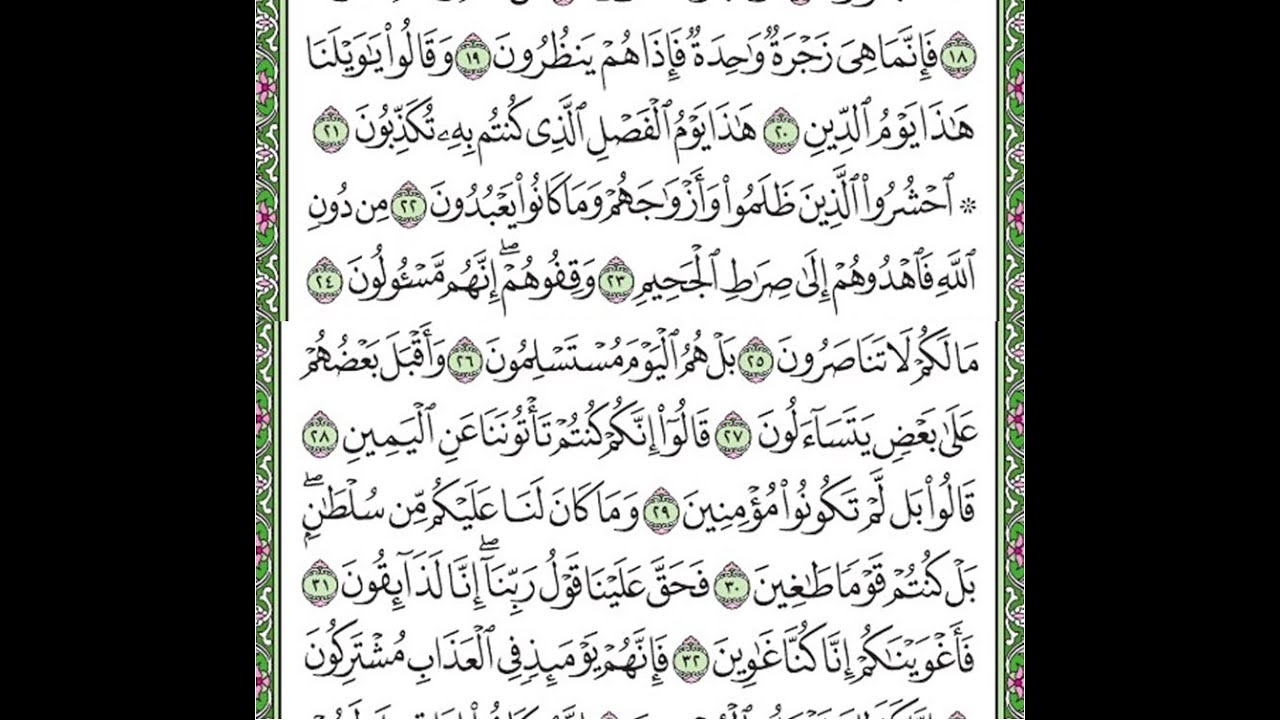 ١٨ فَإِنَّمَا هِىَ زَجْرَةٌ وَٰحِدَةٌ فَإِذَا هُمْ يَنظُرُونَ ١٩ وَقَالُوا۟ يَٰوَيْلَنَا
هَٰذَا يَوْمُ ٱلدِّينِ ٢٠ هَٰذَا يَوْمُ ٱلْفَصْلِ ٱلَّذِى كُنتُم بِهِۦ تُكَذِّبُونَ ٢١
* ٱحْشُرُوا۟ ٱلَّذِينَ ظَلَمُوا۟ وَأَزْوَٰجَهُمْ وَمَا كَانُوا۟ يَعْبُدُونَ ٢٢ مِن دُونِ
ٱللَّهِ فَٱهْدُوهُمْ إِلَىٰ صِرَٰطِ ٱلْجَحِيمِ ٢٣ وَقِفُوهُمْ ۖ إِنَّهُم مَّسْـُٔولُونَ ٢٤
مَا لَكُمْ لَا تَنَاصَرُونَ ٢٥ بَلْ هُمُ ٱلْيَوْمَ مُسْتَسْلِمُونَ ٢٦ وَأَقْبَلَ بَعْضُهُمْ
عَلَىٰ بَعْضٍ يَتَسَآءَلُونَ ٢٧ قَالُوٓا۟ إِنَّكُمْ كُنتُمْ تَأْتُونَنَا عَنِ ٱلْيَمِينِ ٢٨
قَالُوا۟ بَل لَّمْ تَكُونُوا۟ مُؤْمِنِينَ ٢٩ وَمَا كَانَ لَنَا عَلَيْكُم مِّن سُلْطَٰنٍۭ ۖ
بَلْ كُنتُمْ قَوْمًا طَٰغِينَ ٣٠ فَحَقَّ عَلَيْنَا قَوْلُ رَبِّنَآ ۖ إِنَّا لَذَآئِقُونَ ٣١
فَأَغْوَيْنَٰكُمْ إِنَّا كُنَّا غَٰوِينَ ٣٢ فَإِنَّهُمْ يَوْمَئِذٍ فِى ٱلْعَذَابِ مُشْتَرِكُونَ